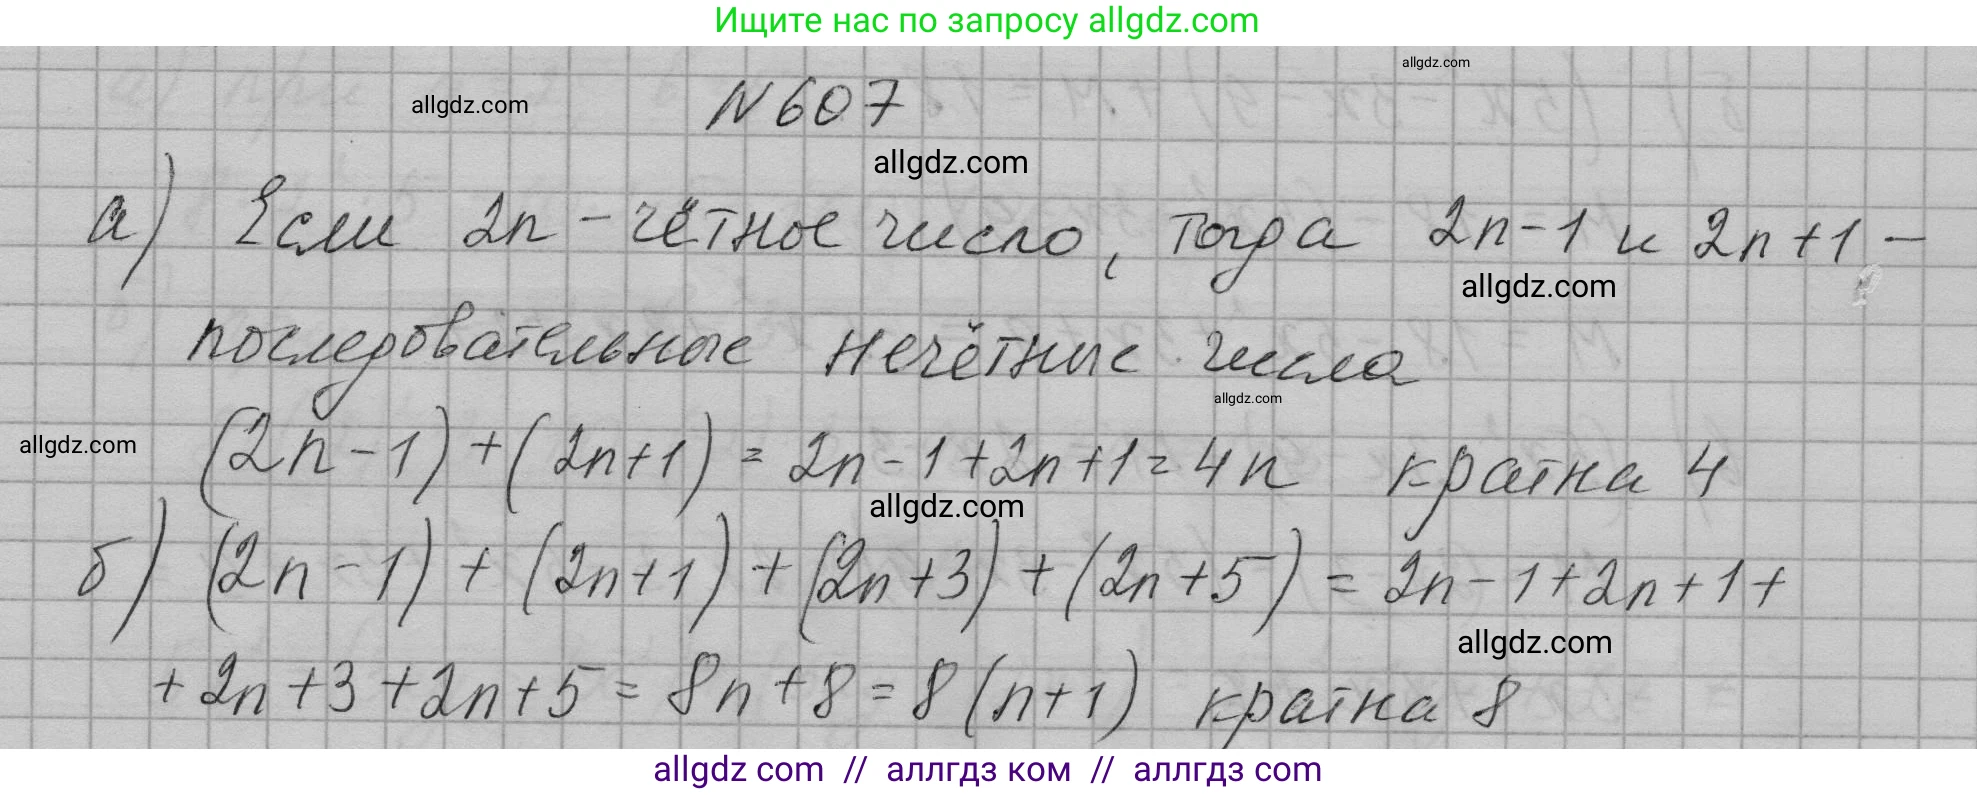 Ищите нас по запросу allgdz.com
allgdz.com
allgdz.com N 607
allgdz.com
а) Если 2n - чётное число, тогда 2n-1 и 2n+1 -
allgdz.com
последовательные нечётные числа
allgdz.com
allgdz.com (2n-1)+(2n+1) = 2n-1+2n+1=4n кратна 4
allgdz.com
б) (2n-1)+(2n+1)+(2n+3)+(2n+5) = 2n-1+2n+1+
allgdz.com
+2n+3+2n+5=8n+8=8(n+1) кратна 8
allgdz com // аллгдз ком // аллгдз com